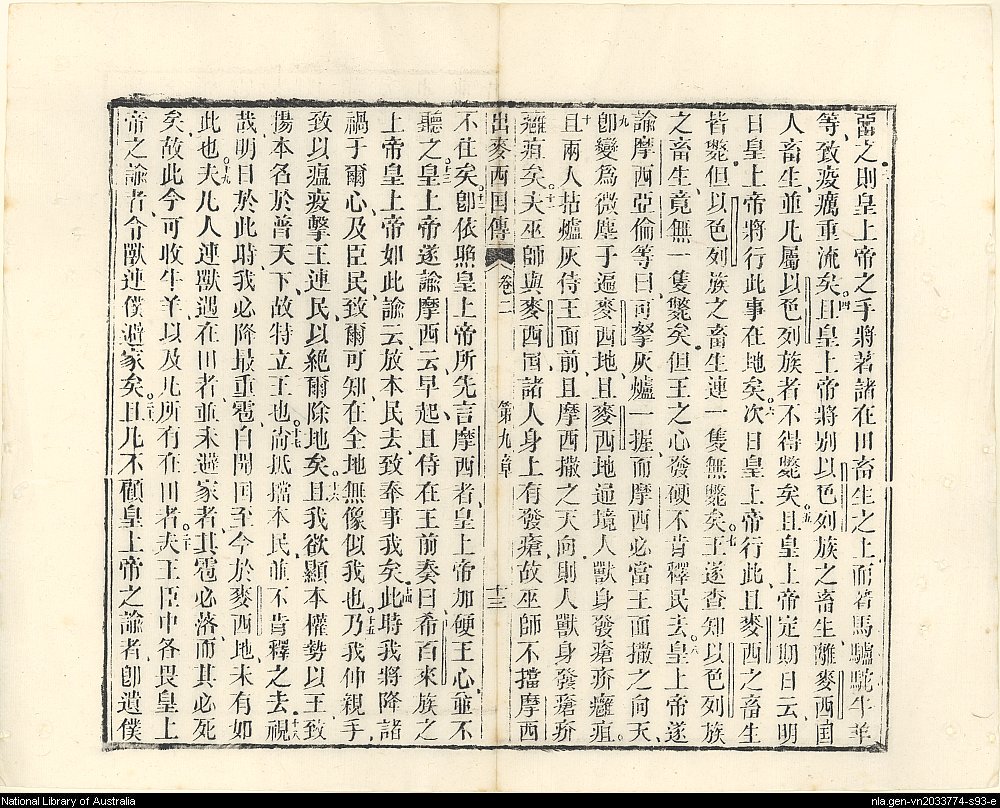 畱之則皇上帝之手將著諸在田畜生之上而着馬驢駝牛羊
等致疫癘重流矣○四且皇上帝將别以色列族之畜生離麥西国
人畜生並凡屬以色列族者不得斃矣○五且皇上帝定期日云明
日皇上帝將行此事在地矣○六次日皇上帝行此且麥西之畜生
皆斃但以色列族之畜生連一隻無斃矣○七王遂查知以色列族
之畜生竟無一隻斃矣但王之心發硬不肯釋民去○八皇上帝遂
諭摩西亞倫等曰可拏灰爐一握而摩西必當王面撒之向天
○九卽變爲微塵于遍麥西地且麥西地通境人獸身發瘡疥癰疽
○十且兩人拈爐灰侍王面前且摩西撒之天向則人獸身發瘡疥
癰疽矣○十一夫巫師與麥西国諸人身上有發瘡故巫師不擋摩西
出麥西国傳 卷二 第九章 十三
不住矣○十二卽依照皇上帝所先言摩西者皇上帝加硬王心並不
聽之○十三皇上帝遂諭摩西云早起且侍在王前奏曰希百來族之
上帝皇上帝如此諭云放本民去致奉事我矣○十四此時我將降諸
禍于爾心及臣民致爾可知在全地無像似我也○十五乃我伸親手
致以瘟疫擊王連民以絶爾除地矣○十六且我欲顯本權勢以王致
揚本名於普天下故特立王也○十七尚抵擋本民並不肯釋之去○十八視
哉明日於此時我必降最重雹自開囯至今於麥西地未有如
此也○十九夫凡人連獸遇在田者並未避家者其雹必落而其必死
矣故此今可收牛羊以及凡所有在田者○二十夫王臣中各畏皇上
帝之諭者令獸連僕避家矣○二十一且凡不顧皇上帝之諭者卽遺僕
National Library of Australia
nla.gen-vn2033774-s93-e